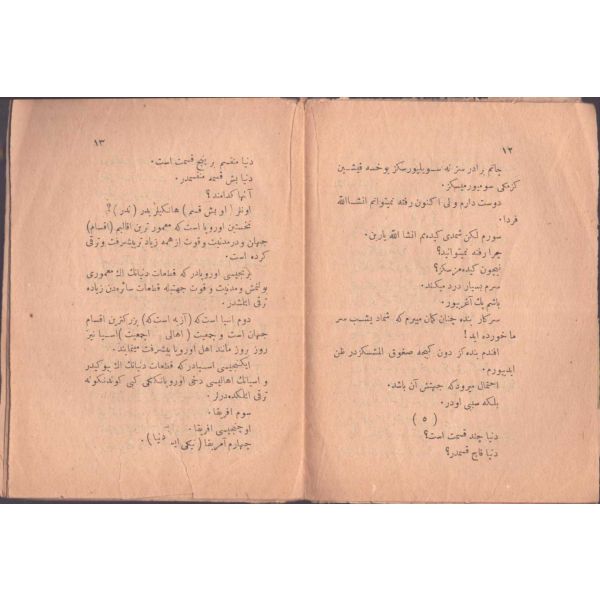 ١٢
جانم برادر سز نه سویلیورسکز یوخسه قیشین
کزمکی سومیورمیسکز.
دوست دارم ولی اکنون رفته نمیتوانم انشاالله
فردا.
سورم لکن شمدی کیده‌مم انشا الله یارین.
چرا رفته نمیتوانید؟
نیچون کیده‌مزسکز؟
سرم بسیار درد میکند.
باشم پك آغریور.
سرکار بنده چنان کمان میبرم که شماد یشب سر
ما خورده اید!
افندم بنده‌کز دون کیجه صغوق المشسکزدر ظن
ایدییورم.
احتمال میرودکه جهتش آن باشد.
بلکه سببی اودر.
( ٥ )
دنیا چند قسمت است؟
دنیا قاچ قسمدر؟
١٣
دنیا منقسم بر پنج قسمت است.
دنیا بش قسمه منقسمدر.
آنها کدامند؟
اونلر ( او بش قسم ) هانکیلریدر ( ندر )؟
نخستین اوروپا است که معمور ترین اقالیم (اقسام)
جهان و درمدنیت و قوت از همه زیاد تر پیشرفت و ترقی
کرده است.
برنجیسی اوروپادر که قطعات دنیانك اك معموری
بولنمش و مدنیت و قوت جهتیله قطعات سائره‌دن زیاده
ترقی ایتلشدر.
دوم اسیا است که ( آزیه است که ) بزرکترین اقسام
جهان است و جمعیت ( اهالی اجمعیت ) اسیا نیز
روز بروز مانند اهل اوروپا پیشرفت مینمایند.
ایکنجیسی اسیادر که قطعات دنیانك اك بیوکیدر
و اسیانك اهالیسی دخی اوروپانککی کبی کوندنکونه
ترقی ایتلکده‌درلر.
سوم افریقا.
اوچنجیسی افریقا.
چهارم آمریقا ( نیکی دنیا ).